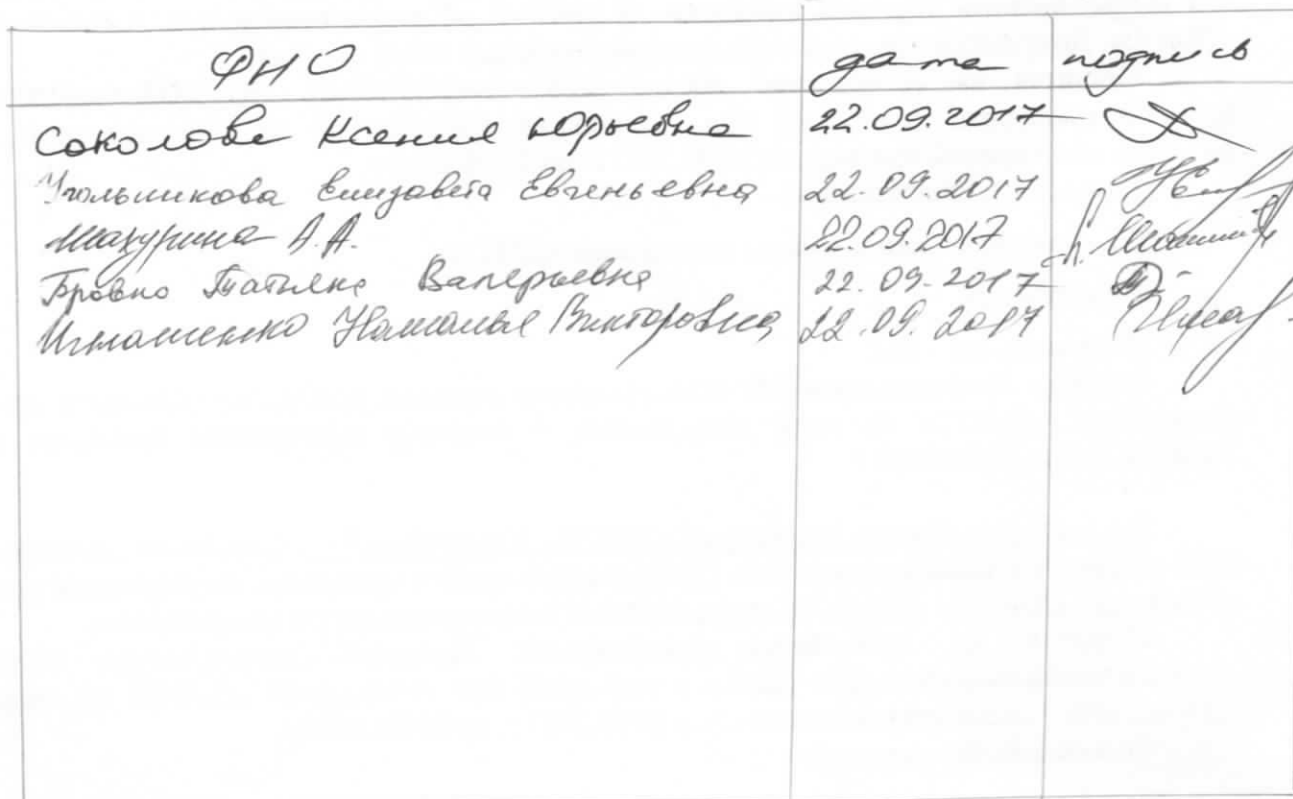 ФИО дата подпись
Соколова Ксения Юрьевна 22.09.2017
Угольникова Елизавета Евгеньевна 22.09.2017
А.А. 22.09.2017
Бровко Татьяна Валерьевна 22.09.2017
Игнатенко Наталья Викторовна 22.09.2017